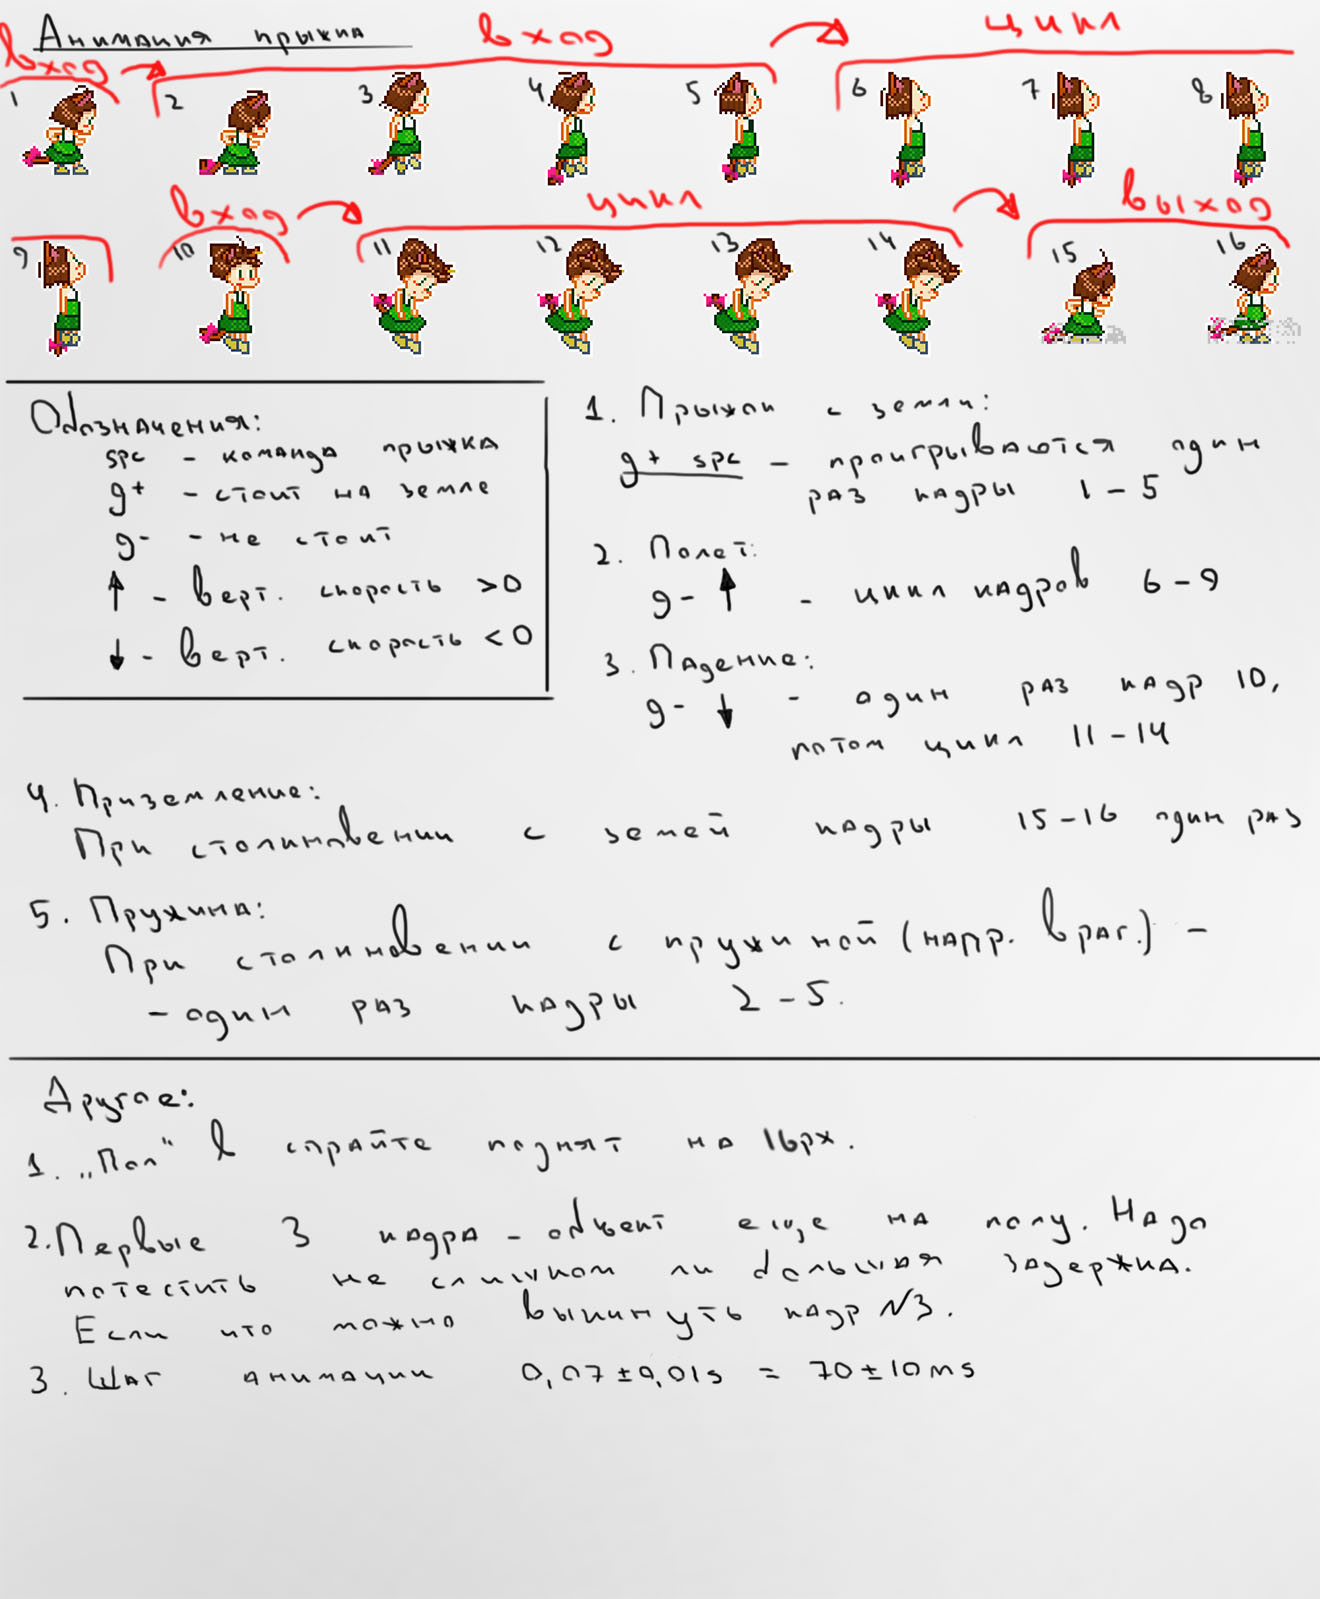 Анимация прыжка
вход
вход
цикл
1 2 3 4 5 6 7 8
вход
цикл
выход
9 10 11 12 13 14 15 16
Обозначения:
spc - команда прыжка
g+ - стоит на земле
g- - не стоит
↑ - верт. скорость >0
↓ - верт. скорость <0
1. Прыжок с земли:
g+ spc - проигрываются один
раз кадры 1-5
2. Полет:
g- ↑ - цикл кадров 6-9
3. Падение:
g- ↓ - один раз кадр 10,
потом цикл 11-14
4. Приземление:
При столкновении с земей кадры 15-16 один раз
5. Пружина:
При столкновении с пружиной (напр. враг.) -
- один раз кадры 2-5.
Другое:
1. „Пол“ в спрайте поднят на 16px.
2. Первые 3 кадра - объект еще на полу. Надо
потестить не слишком ли большая задержка.
Если что можно выкинуть кадр №3.
3. Шаг анимации 0,07±0,01s = 70±10ms